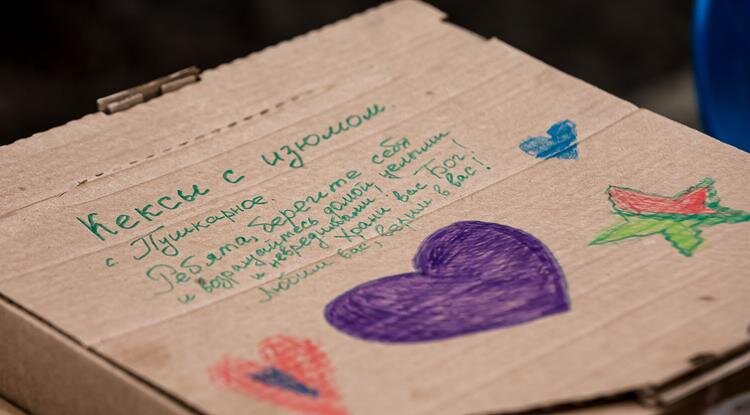 Кексы с изюмом
с Пушкарное.
Ребята, берегите себя
и возращайтесь домой, целыми
и невредимыми! Храни вас Бог!
Любим вас, верим в вас!